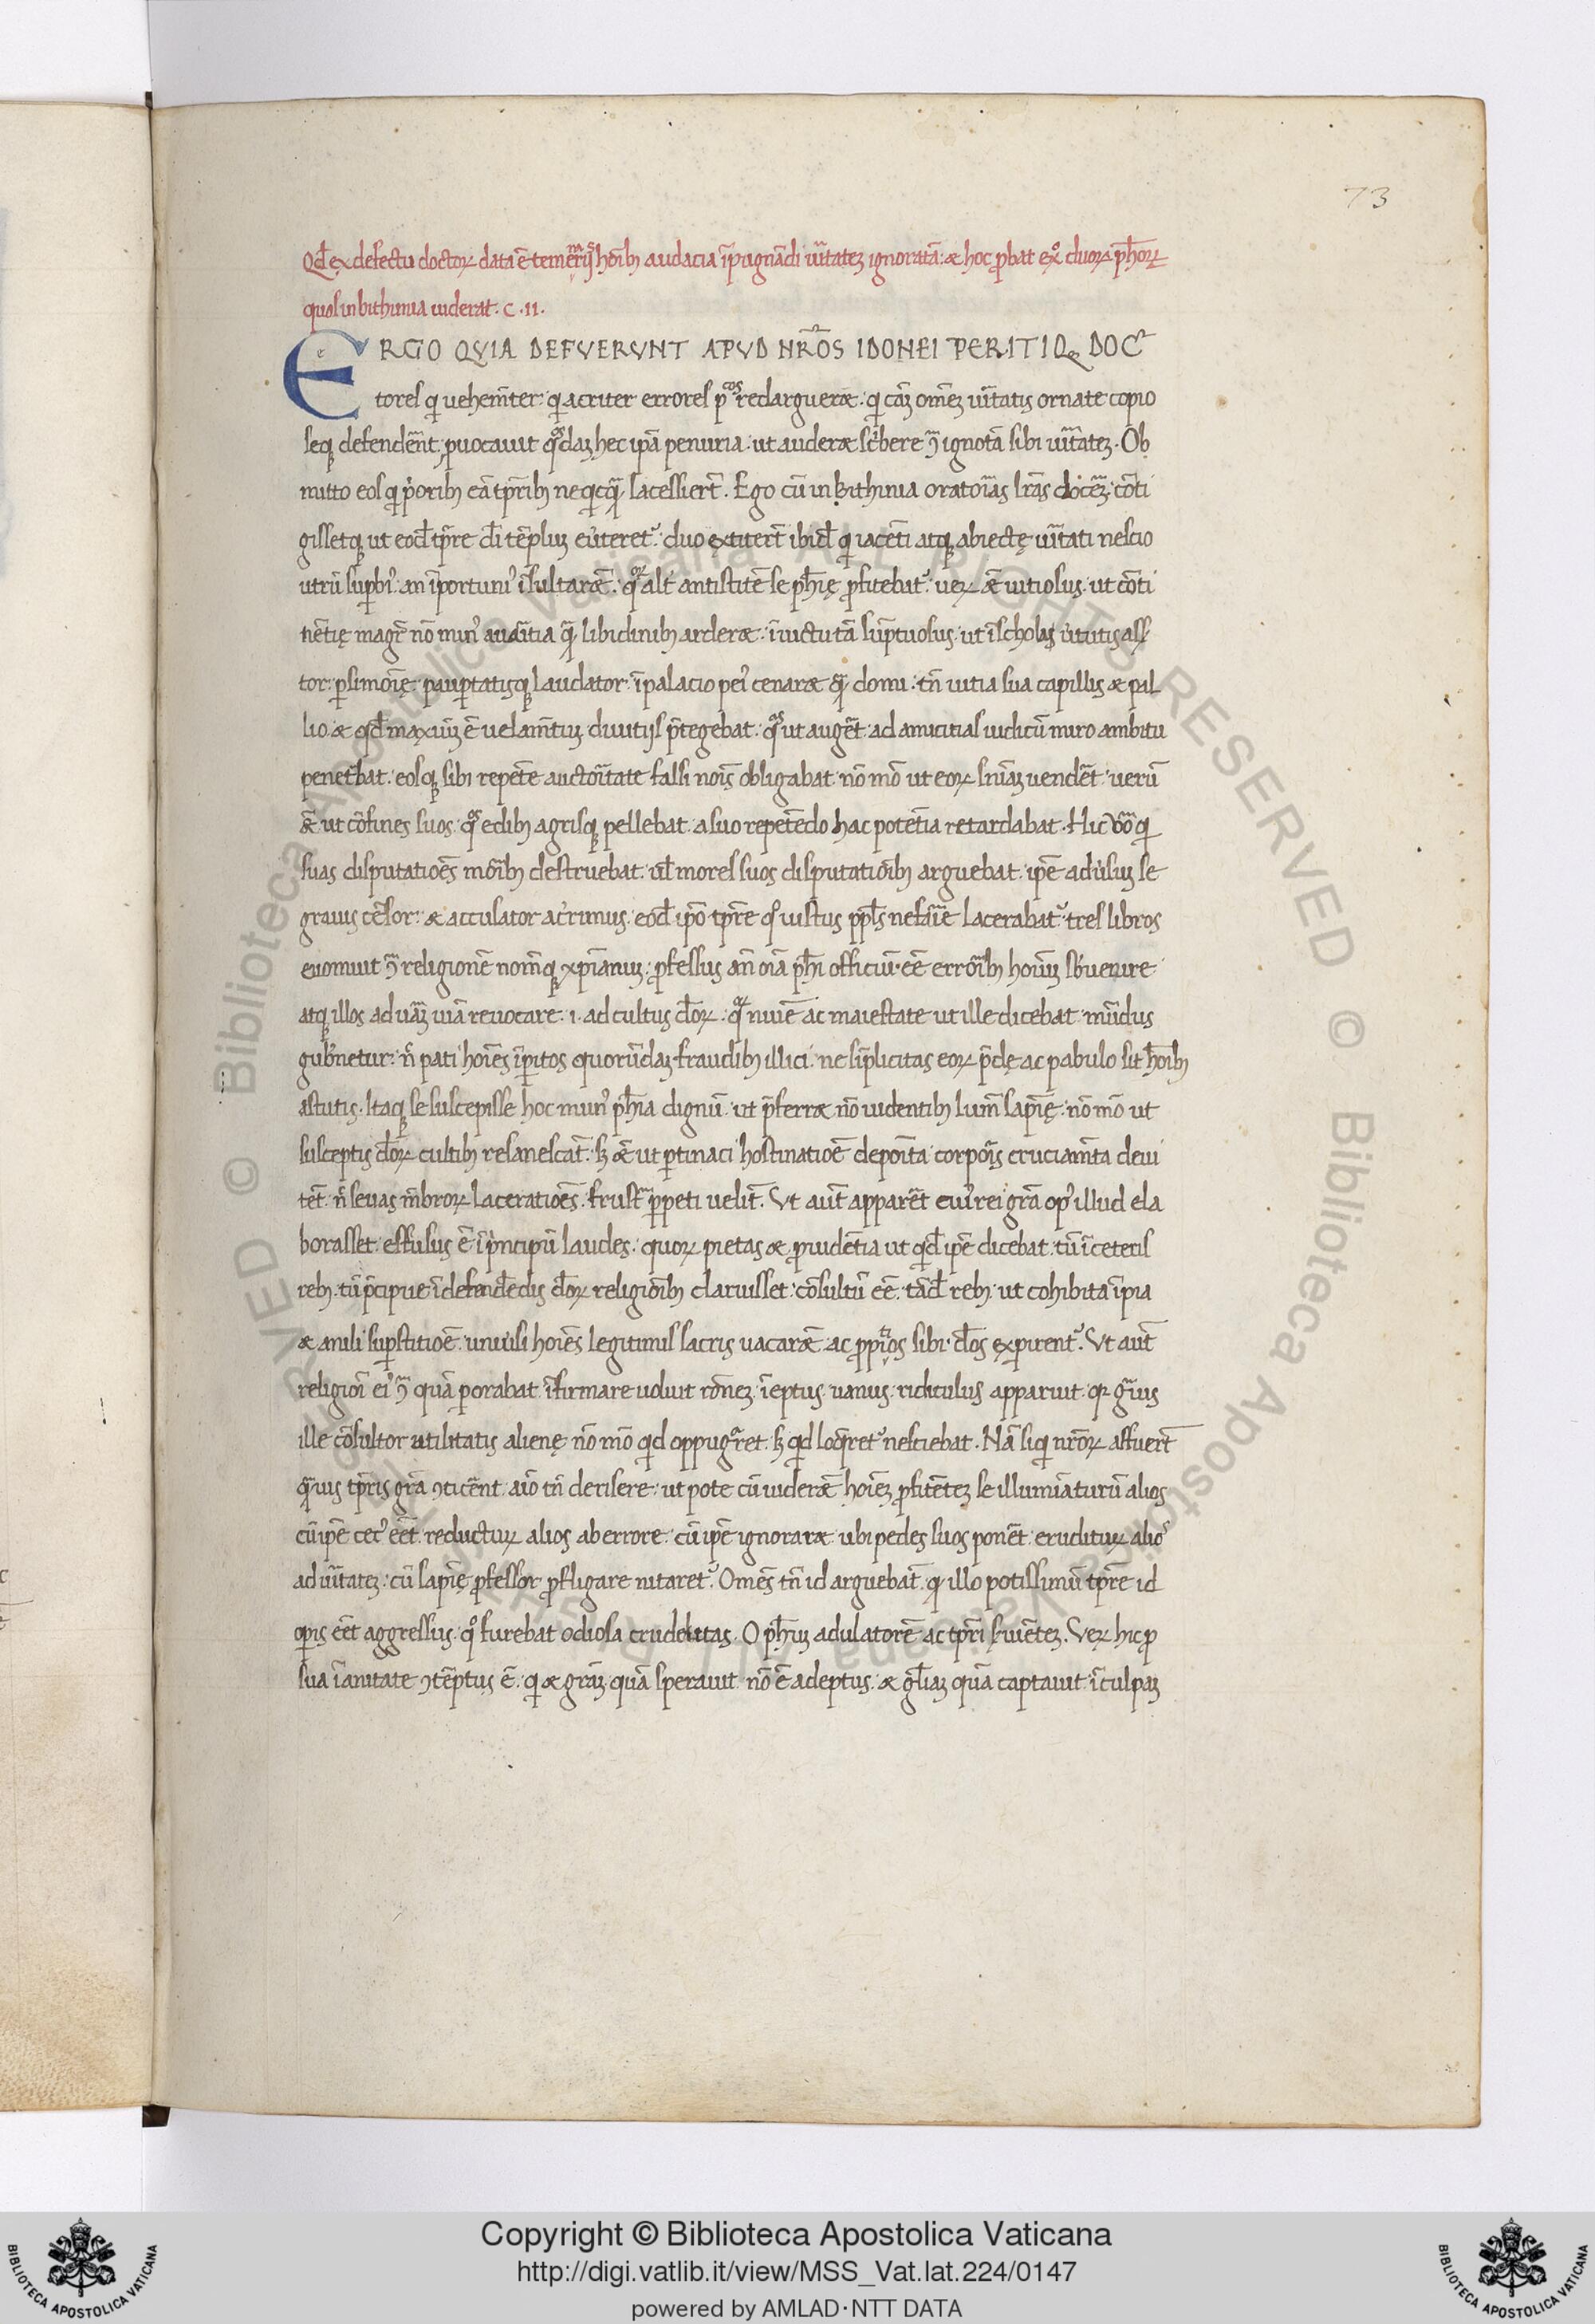 73
Qđ ex defectu doctoꝝ data ē temerarijs hoībꝫ audacia īpugnādi uītateꝫ ignoratā: & hoc ꝓbat exº duoꝝ ꝑħoꝝ
quos in bithinia uiderat. C .11.
ERGO QVIA DEFVERVNT APVD NR̄OS IDONEI PERITIQꝫ DOC
tores qi uehemēter: qi acriter errores pᵒˢ redarguerēt: qi cāꝫ omēꝫ uītatis ornate copio
seqꝫ defendēnt, ꝓuocauit qᵒˢdaꝫ hec ipā penuria: ut auderēt sc̓bere ꝯ̄ ignotā sibi uītateꝫ. Ob
mitto eos qi p̓oribꝫ eā tꝑribꝫ neqicq̄ lacessiert̄. Ego cū in bithinia oratoīas lr̄as docēꝫ: cōti
gissetqꝫ ut eođ tꝑre đi tēpluꝫ eu̓teret᷑ duo extitert̄ ibiđ qi iacēti atqꝫ abiectę uītati nescio
utrū suꝑbiꝰ: an īportuniꝰ īsultarēt: qᵒꝝ alt̓ antistitē se ꝑħię ꝓfitebat᷑ ueꝝ āe uitiosus: ut cōti
nētię magr̄ nō minꝰ auaritia q̄ libidinibꝫ arderet: ī uictu tā sūptuosus: ut ī scholis u̓tutis ass̓
tor: ꝑsimoīę: pauꝑtatisqꝫ laudator: ī palacio peiꝰ cenaret q̄ domi: tn̄ uitia sua capillis & pal
lio & qđ maxiūꝫ ē uelamētuꝫ diuitijs p̄tegebat: qᵃˢ ut augēt ad amicitias iudicū miro ambitu
penet̄bat: eosqꝫ sibi repēte auctoītate falsi noīs obligabat: nō mō ut eoꝝ sniāꝫ uendēt: uerū
āe ut cōfines suos: qᵒˢ edibꝫ agrisqꝫ pellebat: a suo repetēdo hac potētia retardabat. Hic uō qi
suas disputatiōēs moībꝫ destruebat: ul̄ mores suos disputatiōibꝫ arguebat: ipē adu̓suꝫ se
grauis cēsor: & accusator ac̓rimus: eođ ipō tꝑre qº iustus ppl̄s nefārie lacerabat᷑ tres libros
euomuit ꝯ̄ religionē nomēqꝫ xp̄ianuꝫ: ꝓfessus an̄ oīa ꝑħi officiū eē errōibꝫ hoīuꝫ sb̓uenire
atqꝫ illos ad uāꝫ uiā reuocare: .i. ad cultus đoꝝ: qᵒꝝ nuīe ac maiestate ut ille dicebat mūdus
gub̓netur: n̄ pati hoīēs īꝑitos quorūdaꝫ fraudibꝫ illici: ne sīplicitas eoꝝ p̄dę ac pabulo sit hoībꝫ
astutis. Itaqꝫ se suscepisse hoc munꝰ ꝑħia dignū: ut p̄ferret nō uidentibꝫ lum̄ sapīę: nō mō ut
susceptis đoꝝ cultibꝫ resanescāt: sꝫ āe ut ꝑtinaci hostinatiōē deposita corpoīs cruciamēta deui
tēt: n̄ seuas mēbroꝝ laceratiōēs: frust̄ ꝑpeti uelit̄. Ut aut̄ apparēt cuiꝰ rei grā opꝰ illud ela
borasset: effusus ē ī p̓ncipū laudes: quoꝝ pietas & ꝓuidētia ut qđ ipē dicebat: tū ī ceteris
rebꝫ: tū p̄cipue ī defendēdis đoꝝ religiōibꝫ claruisset: cōsultū eē: tāđ rebꝫ: ut cohibita īpia
& anili suꝑstitiōē: uniu̓si hoīēs legitimis sacris uacarēt: ac ꝓpitios sibi đos exꝑirent᷑. Ut aut̄
religiōī eiꝰ ꝯ̄ quā ꝑorabat īfirmare uoluit rōneꝫ: īeptus: uanus: ridiculus apparuit: qꝛ gūis
ille cōsultor utilitatis alienę nō mō qid oppugᵃret: sꝫ qid loq̄ret᷑ nesciebat. Nā siqi nr̄oꝝ affuert̄
q̄uis tꝑris grā ꝯticēnt: aīo tn̄ derisere: ut pote cū uiderēt hoīeꝫ ꝓfitēteꝫ se illumiāturū alios
cū ipē cecꝰ eēt: reductuꝝ alios ab errore: cū ipē ignoraret ubi pedes suos ponēt: erudituꝝ alioˢ
ad uītateꝫ: cū sapīę ꝓfessor ꝓfligare nitaret᷑. Omēs tn̄ id arguebāt: qꝛ illo potissimū tꝑre id
opis eēt aggressus: qº furebat odiosa crudelitas. O ꝑħuꝫ adulatorē ac tꝑri ẜuiēteꝫ. Ueꝝ hic ꝓ
sua īanitate ꝯtēptus ē: qi & grāꝫ quā sperauit nō ē adeptus: & gl̄iaꝫ quā captauit ī culpaꝫ
Copyright © Biblioteca Apostolica Vaticana
http://digi.vatlib.it/view/MSS_Vat.lat.224/0147
powered by AMLAD·NTT DATA